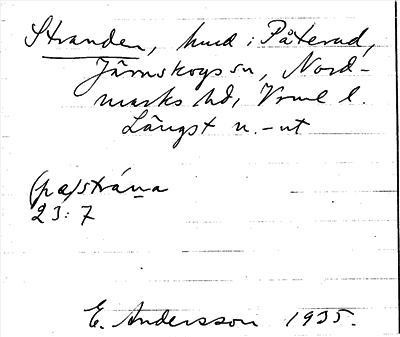 Stranden, hmd i Påterud,
Järnskogs sn, Nord-
marks hd, Vrml l.
Längst n.-ut
(pæ)strána
23:7
E. Andersson 1935.